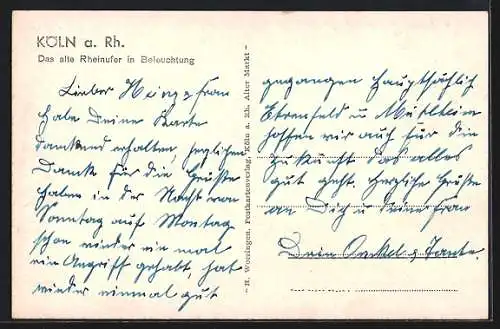 KÖLN a. Rh.
Das alte Rheinufer in Beleuchtung
Lieber Heinz & Frau
habe Deine Karte
dankend erhalten, herzlichen
Dank für die Grüße
haben in der Nacht von
Sonntag auf Montag
schon wieder ein mal
ein Angriff gehabt, hat
wieder einmal gut
– H. Worringen, Postkartenverlag, Köln a. Rh. Alter Markt –
gegangen hauptsächlich
Ehrenfeld u Mülheim
hoffen wir auch für die
Zukunft das alles
gut geht. Herzliche Grüße
an Dich u Deine Frau
Dein Onkel & Tante.